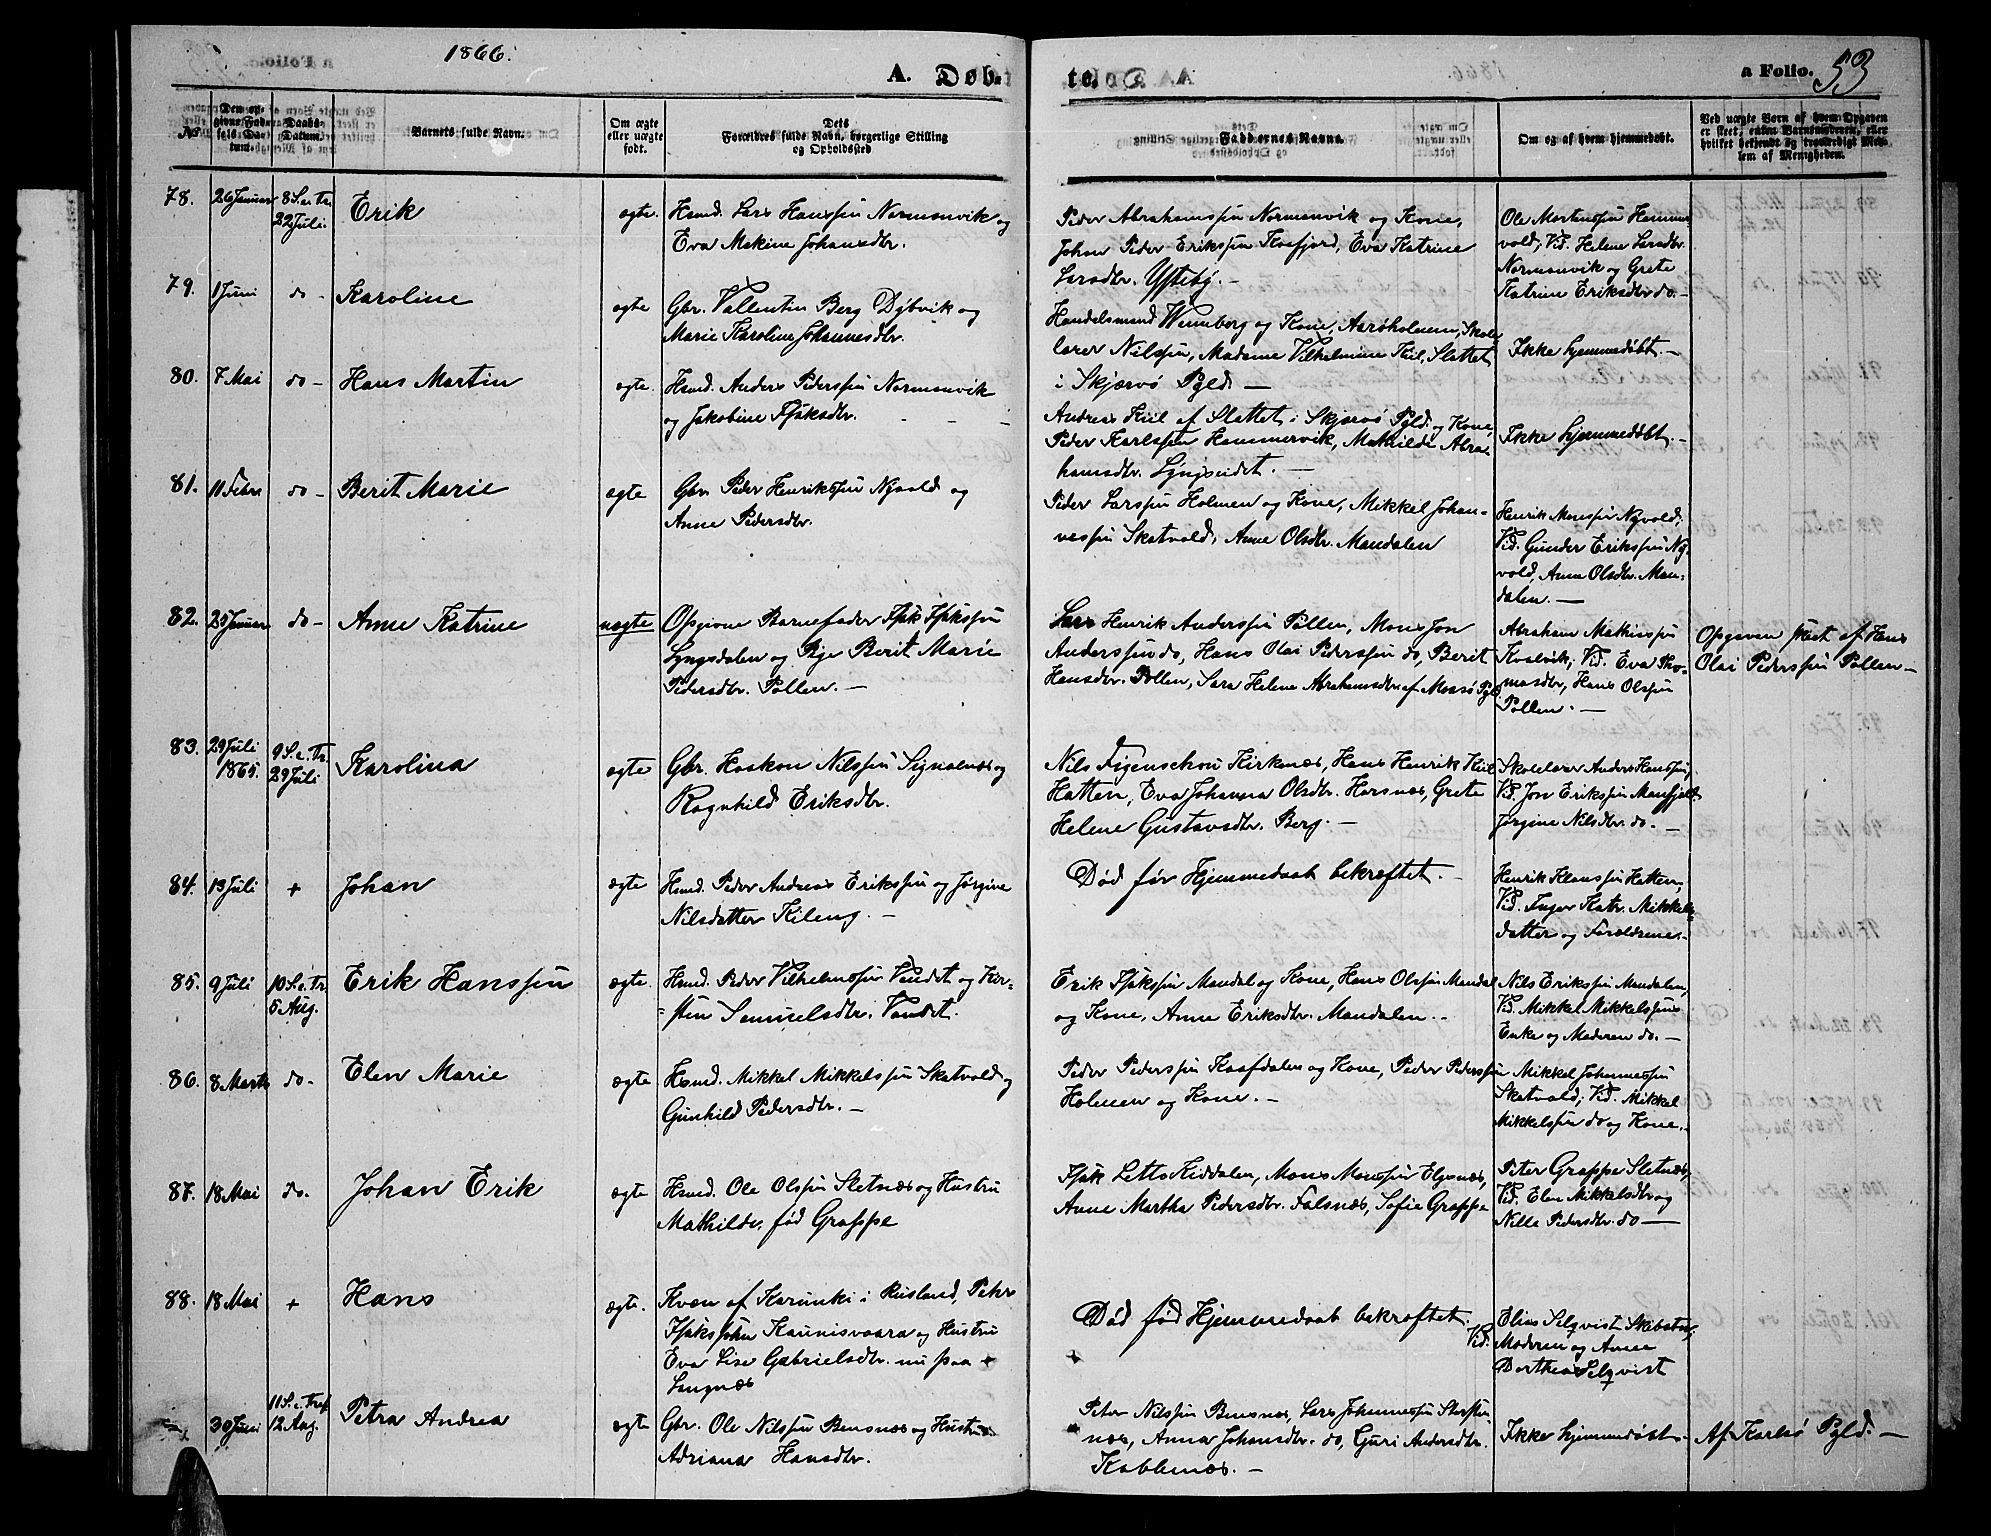 1866.
A. Døb-
te.
a Folio. 53
No
Den op-
givne Fød-
sels Da-
tum.
Daabs-
Datum.
Barnets fulde Navn.
Om ægte
eller uægte
født.
Dets
Forældres fulde Navn, borgerlige Stilling
og Opholdssted
Faddernes Navne.
Om og af hvem hjemmedøbt.
Ved uægte Børn af hvem Opgaven
er skeet, enten Barnemoderen, eller
hvilket bekjendt og troværdigt Med-
lem af Menigheden.
78. 26 Januar 8 S. e. Tr.
22 Juli.
Erik
ægte.
Hsmd. Lars Hanssøn Normanvik og
Eva Makine Johansdtr.
Peder Abrahamssøn Normanvik og Kone,
Johan Peder Erikssøn Kaafjord, Eva Katrine
Larsdtr. Ysteby. —
Ole Mortenssøn Hammer-
vold, Vid. Helene Larsdtr.
Normanvik og Grete
Katrine Eriksdtr do. —
79. 1 Juni do - Karoline
ægte
Gbr. Vallentin Berg Dybvik og
Marie Karoline Johannesdtr.
Handelsmand Wennberg og Kone, Aarøholmen, Skole-
lærer Nilssøn, Madame Vilhelmine Kiil, Slattet
i Skjærvø Pgld. —
Ikke hjemmedøbt. —
80. 7 Mai do - Hans Martin
ægte.
Hsmd. Anders Pederssøn Normanvik
og Jakobine Isaksdtr.
Andreas Kiil af Slattet i Skjærvø Pgld. og Kone,
Peder Karlssøn Hammervik, Mathilde Abra-
hamsdtr. Lyngseidet. —
Ikke hjemmedøbt. —
81. 11 Febr. do - Berit Marie
ægte
Gbr. Peder Henrikssøn Nyvold og
Anne Pedersdtr.
Peder Larssøn Holmen og Kone, Mikkel Johan-
nessøn Skatvold, Anne Olsdtr. Mandalen
Henrik Monssøn Nyvold,
Vid. Gunder Erikssøn Ny-
vold, Anne Olsdtr. Man-
dalen. —
82. 25 Januar do - Anne Katrine
uægte
Opgivne Barnefader Isak Isakssøn
Lyngsdalen og Pige Berit Marie
Pedersdtr. Pollen. —
Lars Henrik Anderssøn Pollen, Mons Jon
Anderssøn do, Hans Olai Pederssøn do, Berit
Hansdtr. Pollen, Sara Helene Abrahamsdtr. af Maasø Pgld.
Abraham Mathissøn
Kvalvik, Vid. Eva Tho-
masdtr, Hans Olssøn
Pollen. —
Opgaven skeet af Hans
Olai Pederssøn Pollen —
83. 29 Juli
1865.
9 S. e. Tr.
29 Juli
Karolina
ægte
Gbr. Haakon Nilssøn Signalnæs og
Ragnhild Eriksdtr.
Nils Figenschou Kirkenæs, Hans Henrik Kiil
Hatten, Eva Johanna Olsdtr. Horsnæs, Grete
Helene Gustavsdtr. Berg. —
Skolelærer Anders Hanssøn,
Vid. Jon Erikssøn Manfjeld
Jørgine Nilsdtr. do. —
84. 13 Juli + Johan
ægte
Hsmd. Peder Andreas Erikssøn og Jørgine
Nilsdatter Kileng. —
Død før Hjemmedaab bekræftet. —
Henrik Klaussøn Hatten,
Vid. Inger Katr. Mikkels-
datter og Forældrene. -
85. 9 Juli 10 S. e. Tr.
5 Aug.
Erik Hanssøn
ægte.
Hsmd. Peder Vilhelmssøn Vandet og Kir-
sten Samuelsdtr. Vandet.
Erik Isakssøn Mandal og Kone, Hans Olssøn Mandal
og Kone, Anne Eriksdtr. Mandalen. -
Nils Erikssøn Mandalen,
Vid. Mikkel Mikkelssøns
Enke og Moderen do. —
86. 8 Marts do. Elen Marie
ægte
Hsmd. Mikkel Mikkelssøn Skatvold og
Gunhild Pedersdtr. —
Peder Pederssøn Kaafdalen og Kone, Peder Pederssøn
Holmen og Kone. —
Mikkel Johannessøn
Skatvold, Vid. Mikkel
Mikkelssøn do og Kone. -
87. 18 Mai do. Johan Erik
ægte
Hsmd. Ole Olssøn Sletnæs og Hustru
Mathilde, fød Grappe
Isak Letto Kiddalen, Mons Monssøn Elgenæs,
Anne Martha Pedersdtr. Falsnæs, Sofie Grappe
Peter Grappe Sletnæs,
Vid. Elen Mikkelsdtr og
Nille Pedersdtr. do —
88. 18 Mai + Hans
ægte.
Kvæn af Karunki i Rusland, Peter
Isakssøn Kaunisvaara og Hustru
Eva Lise Gabrielsdtr. nu paa
Langnæs
Død fød Hjemmedaab bekræftet.
Vid.
Elias Selqvist Skibotn,
Moderen og Anne
Dorthea Selqvist
30 Juni 11 S. e. Tref.
12 Aug.
Petra Andrea
ægte
Gbr. Ole Nilssøn Bensnæs og Hustru
Adriana Hansdtr.
Peter Nilssøn Bensnæs, Lars Johannessøn Storsten-
næs, Anna Johansdtr. do, Guri Andersdtr.
Kobbenæs. —
Ikke hjemmedøbt -
Af Karlsø Pgld. —